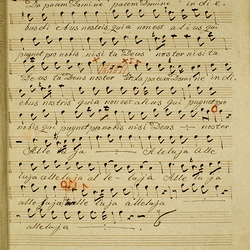 Da pacem Domine pacem Domine in die-
bus die bus nostris quia non est alius qui
pugnet pro nobis nisi tu Deus noster nisi tu
Deus tu Deus noster Da pacem Domine in di-
ebus nostris quia non est alius qui pugnet pro
nobis qui pugnet pro nobis nisi tu Deus noster
Alleluja Alleluja alle
luja alleluja al-le-luja Alleluja
alleluja alleluja alleluja
alleluja